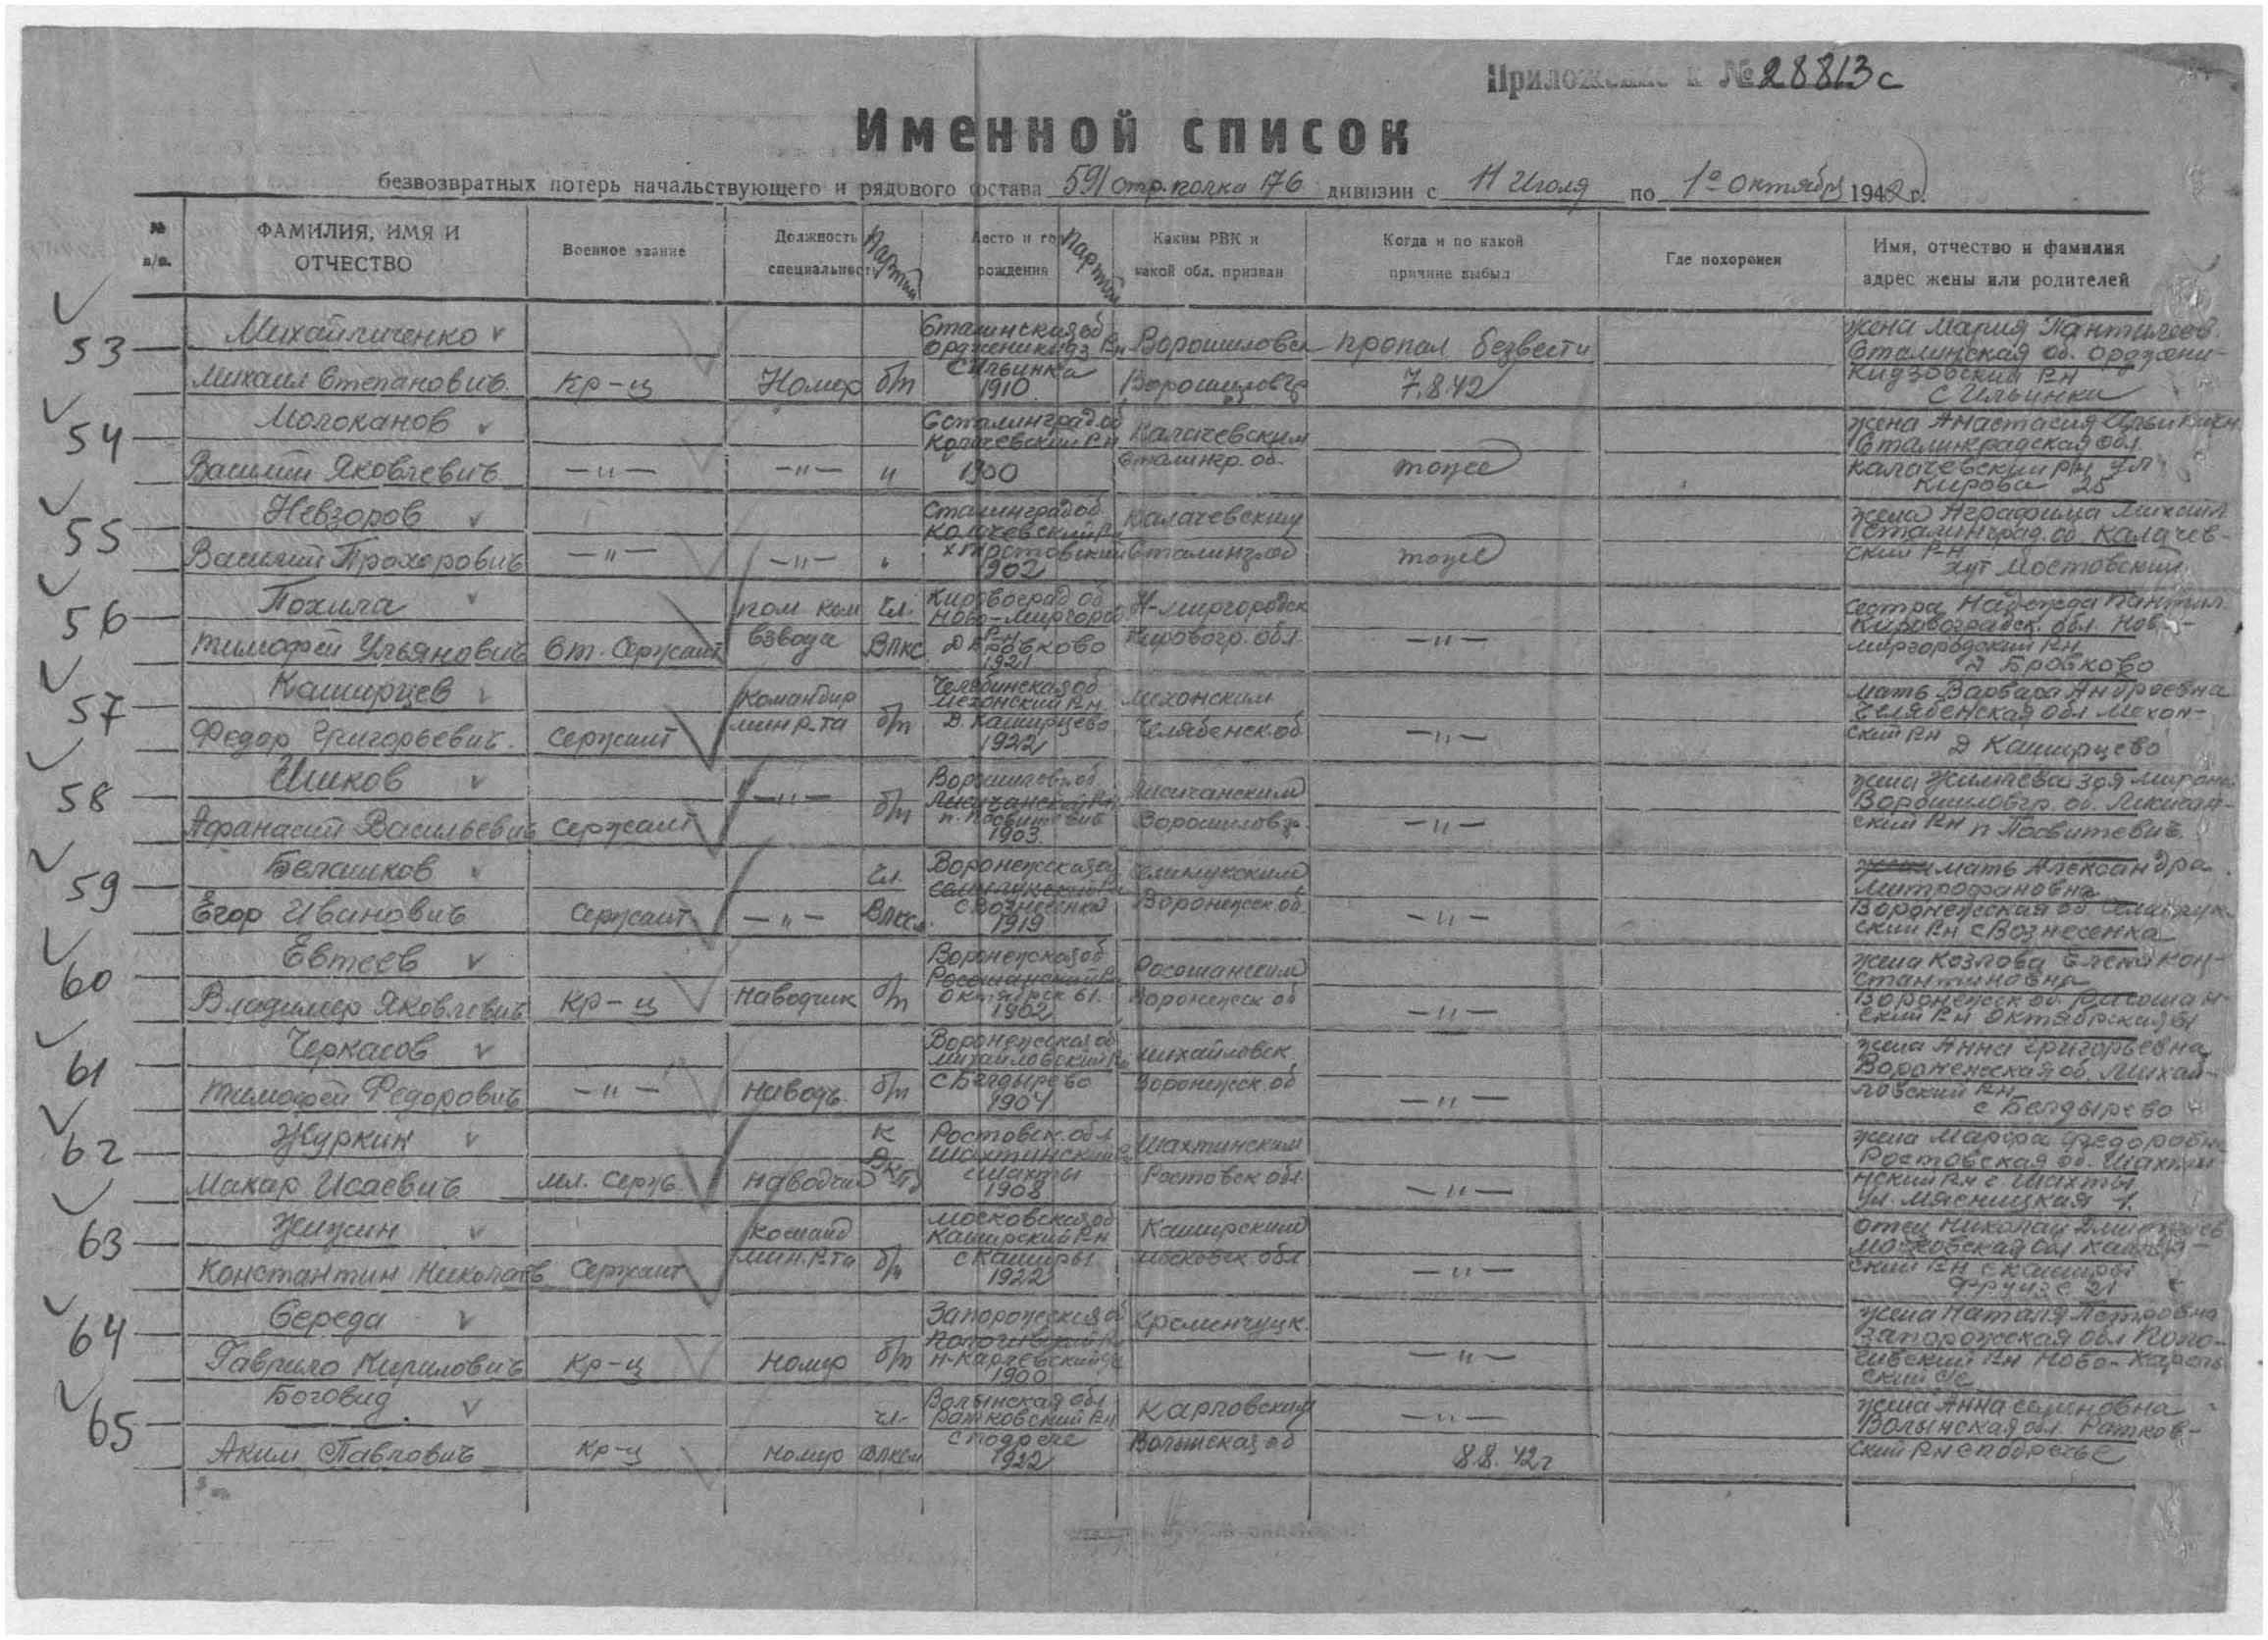 Приложение к № 28813с
Именной список
безвозвратных потерь начальствующего и рядового состава 591 стр. полка 176 дивизии с 11 Июля по 1го октября 1942 г.
№ п/п. ФАМИЛИЯ, ИМЯ И ОТЧЕСТВО Военное звание Должность и специальность Партий Место и год рождения Партий Каким РВК и какой обл. призван Когда и по какой причине выбыл Где похоронен Имя, отчество и фамилия адрес жены или родителей
53 Михайличенко Сталинская об Ворошиловск пропал безвести жена Мария Пантилеев.
Орджоникидз Р-н Сталинская об. Орджони-
Михаил Степанович Кр-ц Номер б/п С Ильинка 1910 Ворошиловгр 7.8.42 кидзовский Р-н
С Ильинки
54 Молоканов Сталинград.об Калачевским жена Анастасия
Калачевский Р-н Сталинградская обл
Василий Яковлевич —"— —"— " 1900 Сталингр. об. тоже калачевский Р-н ул
Кирова 25
55 Невзоров Сталинград об Калачевским жена Аграфина Михайл
Калачевский Р-н Сталинград. об Калачев-
Василий Прохорович —"— —"— " х Мостовский 1902 Сталингр.об тоже ский Р-н
хут Мостовский
56 Похила пом ком чл. Кировоград об Н-миргородск сестра Надежда
Ново-Миргород Кировоградск. обл. Ново-
Тимофей Ульянович Ст. Сержант взвода Влкс Р-н Д Бровково 1921 Кировогр. обл —"— миргородский Р-н
Д Бровково
57 Каширцев Командир Челябинская об Мехонским мать Варвара Андреевна
мин р-та б/п Мехонский Р-н Челябенская обл Мехон-
Федор Григорьевич Сержант Д. Каширцево 1922 Челябенск.об —"— ский Р-н
Д Каширцево
58 Ишков —"— Ворошиловгр об Лисичанским жена Жилиева Зоя Мирон
б/п Лисичанский Р-н Ворошиловгр. об.
Афанасий Васильевич Сержант 1903 Ворошиловгр. —"— ский Р-н
59 Белашков чл. Воронежская о Семилукским мать Александра
Семилукский Р-н Митрофановна
Егор Иванович Сержант —"— Влксм. с Вознесенка 1919 Воронежск об. —"— Воронежская об Семилук-
ский Р-н с Вознесенка
60 Евтеев Воронежская об Росошанским жена Козлова Елена Кон-
Росошанский Р-н стантиновна
Владимер Яковлевич Кр-ц Наводчик б/п Октябрск 61. 1902 Воронежск об —"— Воронежск об Росошан-
ский Р-н Октябрская 61
61 Черкасов Воронежская об Михайловск. жена Анна Григорьевна
Михайловский Р-н Воронежская об. Михай-
Тимофей Федорович —"— Наводч. б/п с Белдырево 1904 Воронежск. об —"— ловский Р-н
с Белдырево
62 Журкин К Ростовск. обл Шахтинским жена Марфа Федоровн
Шахтинский Р Ростовская об. Шахти
Макар Исаевич Мл. Серж Наводчик ВКПб с Шахты 1908 Ростовск обл. —"— нский Р-н с Шахты
ул. Мясницкая 1.
63 Жижин Команд Московская об Каширским отец Николай Дмитриев
мин. Р-та б/п Каширский Р-н Московская обл Кашир-
Константин Николаев Сержант с Каширы 1922 Московск. обл —"— ский Р-н с Каширы
Фрунзе 21
64 Середа Запорожская об Кременчуцк. жена Наталя Петровна
Запорожская обл Поло-
Гаврило Кирилович Кр-ц Номер б/п 1900 —"— гивский Р-н Ново-Карлов
ский с/с
65 Боговид чл. Волынская обл Карловским —"— жена Анна Семеновна
Ратковский Р-н Волынская обл. Ратков-
Аким Павлович Кр-ц Номер Влксм с Подрече 1922 Волынская об 8.8.42г ский Р-н с Подречье